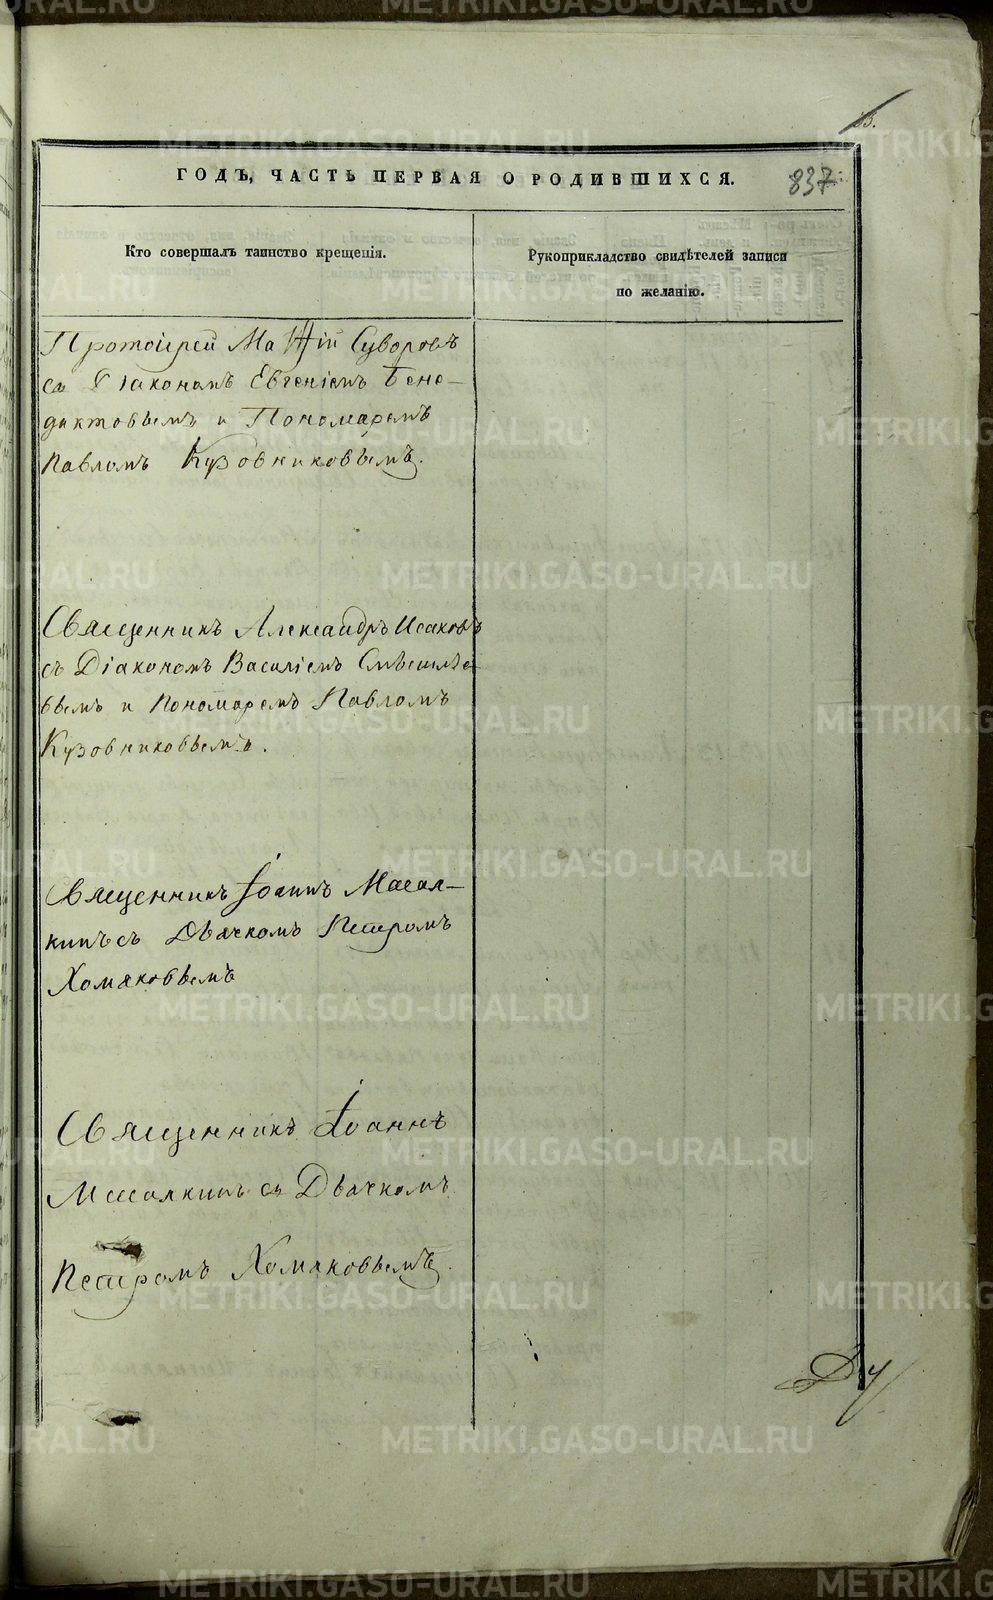 837
ГОДЪ, ЧАСТЬ ПЕРВАЯ О РОДИВШИХСЯ.
Кто совершалъ таинство крещенія.
Рукоприкладство свидѣтелей записи
по желанію.
Протоіерей Матѳій Суворовъ
съ Діакономъ Евгеніемъ Бене-
диктовымъ и Пономаремъ
Павломъ Кузовниковымъ.
Священникъ Александръ Исаковъ
съ Діакономъ Василіемъ
вымъ и Пономаремъ Павломъ
Кузовниковымъ.
Священникъ Іоаннъ Масал-
кинъ съ Дьячкомъ Петромъ
Хомяковымъ
Священникъ Іоаннъ
Масалкинъ съ Дьячкомъ
Петромъ Хомяковымъ.
METRIKI.GASO-URAL.RU